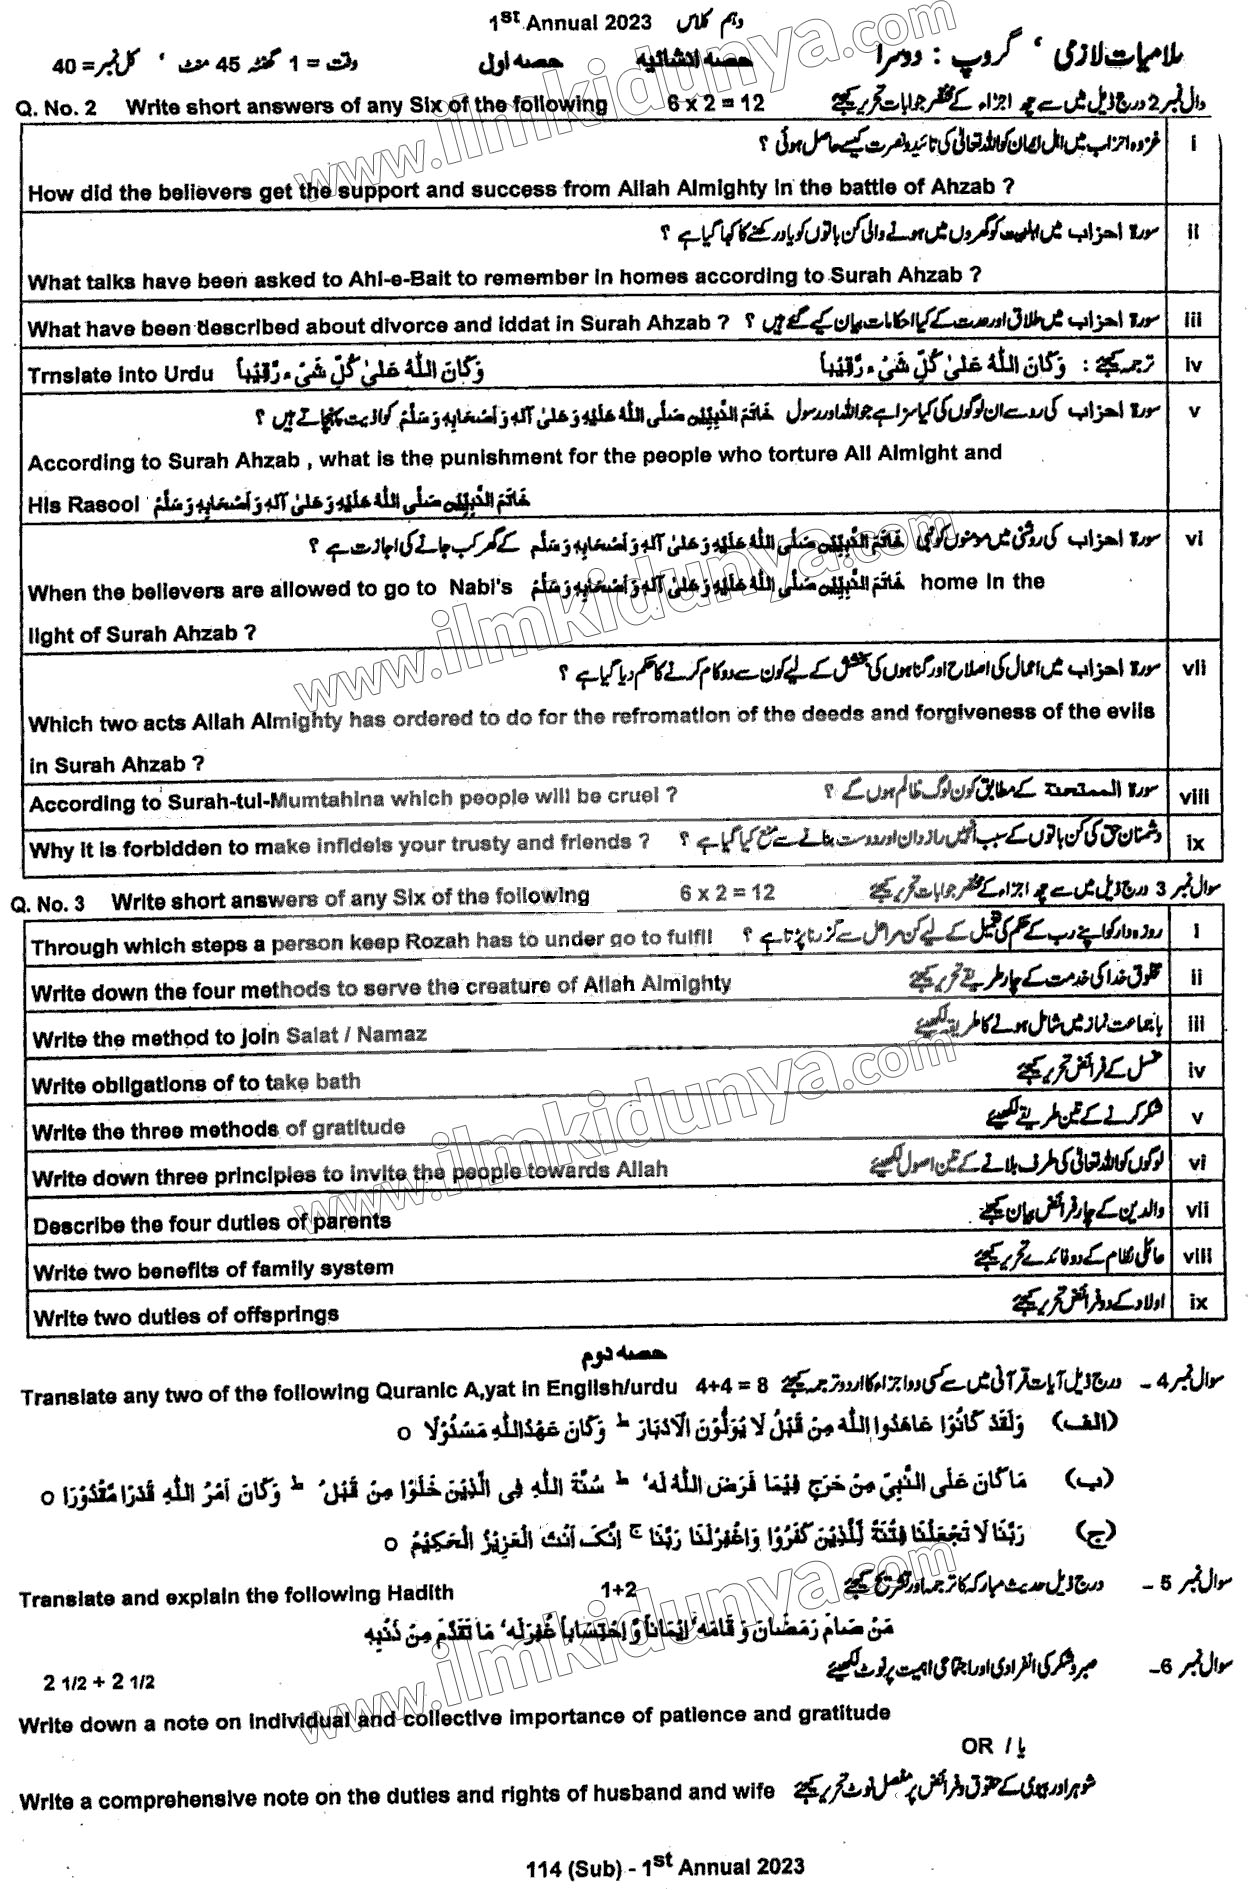 1st Annual 2023 دہم کلاس
اسلامیات لازمی ، گروپ : دوسرا
حصہ انشائیہ
حصہ اول
وقت = 1 گھنٹہ 45 منٹ ، کل نمبر = 40
Q. No. 2 Write short answers of any Six of the following 6 x 2 = 12 سوال نمبر 2 درج ذیل میں سے چھ اجزاء کے مختصر جوابات تحریر کیجئے
i غزوہ احزاب میں اہل ایمان کو اللہ تعالیٰ کی تائید و نصرت کیسے حاصل ہوئی ؟
How did the believers get the support and success from Allah Almighty in the battle of Ahzab ?
ii سورۃ احزاب میں اہلبیت کو گھروں میں ہونے والی کن باتوں کو یاد رکھنے کا کہا گیا ہے ؟
What talks have been asked to Ahl-e-Bait to remember in homes according to Surah Ahzab ?
What have been described about divorce and iddat in Surah Ahzab ? سورۃ احزاب میں طلاق اور عدت کے کیا احکامات بیان کیے گئے ہیں ؟ iii
Trnslate into Urdu وَكَانَ اللّٰهُ عَلىٰ كُلِّ شَىْءٍ رَّقِيْباً ترجمہ کیجئے : وَكَانَ اللّٰهُ عَلىٰ كُلِّ شَىْءٍ رَّقِيْباً iv
v سورۃ احزاب کی رو سے ان لوگوں کی کیا سزا ہے جو اللہ اور رسول خَاتَمُ النَّبِيّٖن صَلَّى اللّٰهُ عَلَيْهِ وَعَلىٰ آلِهٖ وَاَصْحَابِهٖ وَسَلَّمْ کو اذیت پہنچاتے ہیں ؟
According to Surah Ahzab , what is the punishment for the people who torture All Almight and
His Rasool خَاتَمُ النَّبِيّٖن صَلَّى اللّٰهُ عَلَيْهِ وَعَلىٰ آلِهٖ وَاَصْحَابِهٖ وَسَلَّمْ
vi سورۃ احزاب کی روشنی میں مومنوں کو نبی خَاتَمُ النَّبِيّٖن صَلَّى اللّٰهُ عَلَيْهِ وَعَلىٰ آلِهٖ وَاَصْحَابِهٖ وَسَلَّمْ کے گھر کب جانے کی اجازت ہے ؟
When the believers are allowed to go to Nabi's خَاتَمُ النَّبِيّٖن صَلَّى اللّٰهُ عَلَيْهِ وَعَلىٰ آلِهٖ وَاَصْحَابِهٖ وَسَلَّمْ home in the
light of Surah Ahzab ?
vii سورۃ احزاب میں اعمال کی اصلاح اور گناہوں کی بخشش کے لیے کون سے دو کام کرنے کا حکم دیا گیا ہے ؟
Which two acts Allah Almighty has ordered to do for the refromation of the deeds and forgiveness of the evils
in Surah Ahzab ?
According to Surah-tul-Mumtahina which people will be cruel ? سورۃ الممتحنۃ کے مطابق کون لوگ ظالم ہوں گے ؟ viii
Why it is forbidden to make infidels your trusty and friends ? دشمنان حق کی کن باتوں کے سبب انہیں رازدان اور دوست بنانے سے منع کیا گیا ہے ؟ ix
Q. No. 3 Write short answers of any Six of the following 6 x 2 = 12 سوال نمبر 3 درج ذیل میں سے چھ اجزاء کے مختصر جوابات تحریر کیجئے
Through which steps a person keep Rozah has to under go to fulfil روزہ دار کو اپنے رب کے حکم کی تعمیل کے لیے کن مراحل سے گزرنا پڑتا ہے ؟ i
Write down the four methods to serve the creature of Allah Almighty مخلوق خدا کی خدمت کے چار طریقے تحریر کیجئے ii
Write the method to join Salat / Namaz باجماعت نماز میں شامل ہونے کا طریقہ لکھیئے iii
Write obligations of to take bath غسل کے فرائض تحریر کیجئے iv
Write the three methods of gratitude شکر کرنے کے تین طریقے لکھیئے v
Write down three principles to invite the people towards Allah لوگوں کو اللہ تعالیٰ کی طرف بلانے کے تین اصول لکھیئے vi
Describe the four duties of parents والدین کے چار فرائض بیان کیجئے vii
Write two benefits of family system عائلی نظام کے دو فائدے تحریر کیجئے viii
Write two duties of offsprings اولاد کے دو فرائض تحریر کیجئے ix
حصہ دوم
Translate any two of the following Quranic A,yat in English/urdu 4+4 = 8 سوال نمبر 4 - درج ذیل آیات قرآنی میں سے کسی دو اجزاء کا اردو ترجمہ کیجئے
(الف) وَلَقَدْ كَانُوْا عَاهَدُوا اللّٰهَ مِنْ قَبْلُ لَا يُوَلُّوْنَ الْاَدْبَارَ ط وَكَانَ عَهْدُاللّٰهِ مَسْئُوْلًا o
(ب) مَا كَانَ عَلَى النَّبِيِّ مِنْ حَرَجٍ فِيْمَا فَرَضَ اللّٰهُ لَهٗ ط سُنَّةَ اللّٰهِ فِى الَّذِيْنَ خَلَوْا مِنْ قَبْلُ ط وَكَانَ اَمْرُ اللّٰهِ قَدَرًا مَّقْدُوْرًا o
(ج) رَبَّنَا لَا تَجْعَلْنَا فِتْنَةً لِّلَّذِيْنَ كَفَرُوْا وَاغْفِرْلَنَا رَبَّنَا ج اِنَّكَ اَنْتَ الْعَزِيْزُ الْحَكِيْمُ o
Translate and explain the following Hadith 1+2 سوال نمبر 5 - درج ذیل حدیث مبارکہ کا ترجمہ اور تشریح کیجئے
مَنْ صَامَ رَمَضَانَ وَقَامَهٗ اِيْمَاناً وَّاِحْتِسَاباً غُفِرَلَهٗ مَا تَقَدَّمَ مِنْ ذَنْبِهٖ
سوال نمبر 6- صبر و شکر کی انفرادی اور اجتماعی اہمیت پر نوٹ لکھیئے
2 1/2 + 2 1/2
Write down a note on individual and collective importance of patience and gratitude
OR / یا
Write a comprehensive note on the duties and rights of husband and wife شوہر اور بیوی کے حقوق و فرائض پر مفصل نوٹ تحریر کیجئے
114 (Sub) - 1st Annual 2023
www.ilmkidunya.com
www.ilmkidunya.com
www.ilmkidunya.com
www.ilmkidunya.com